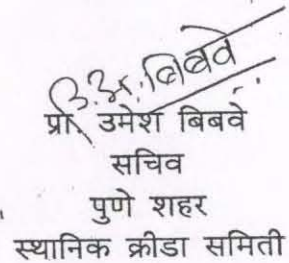 उ.अ. बिबवे
प्रा. उमेश बिबवे
सचिव
पुणे शहर
स्थानिक क्रीडा समिती